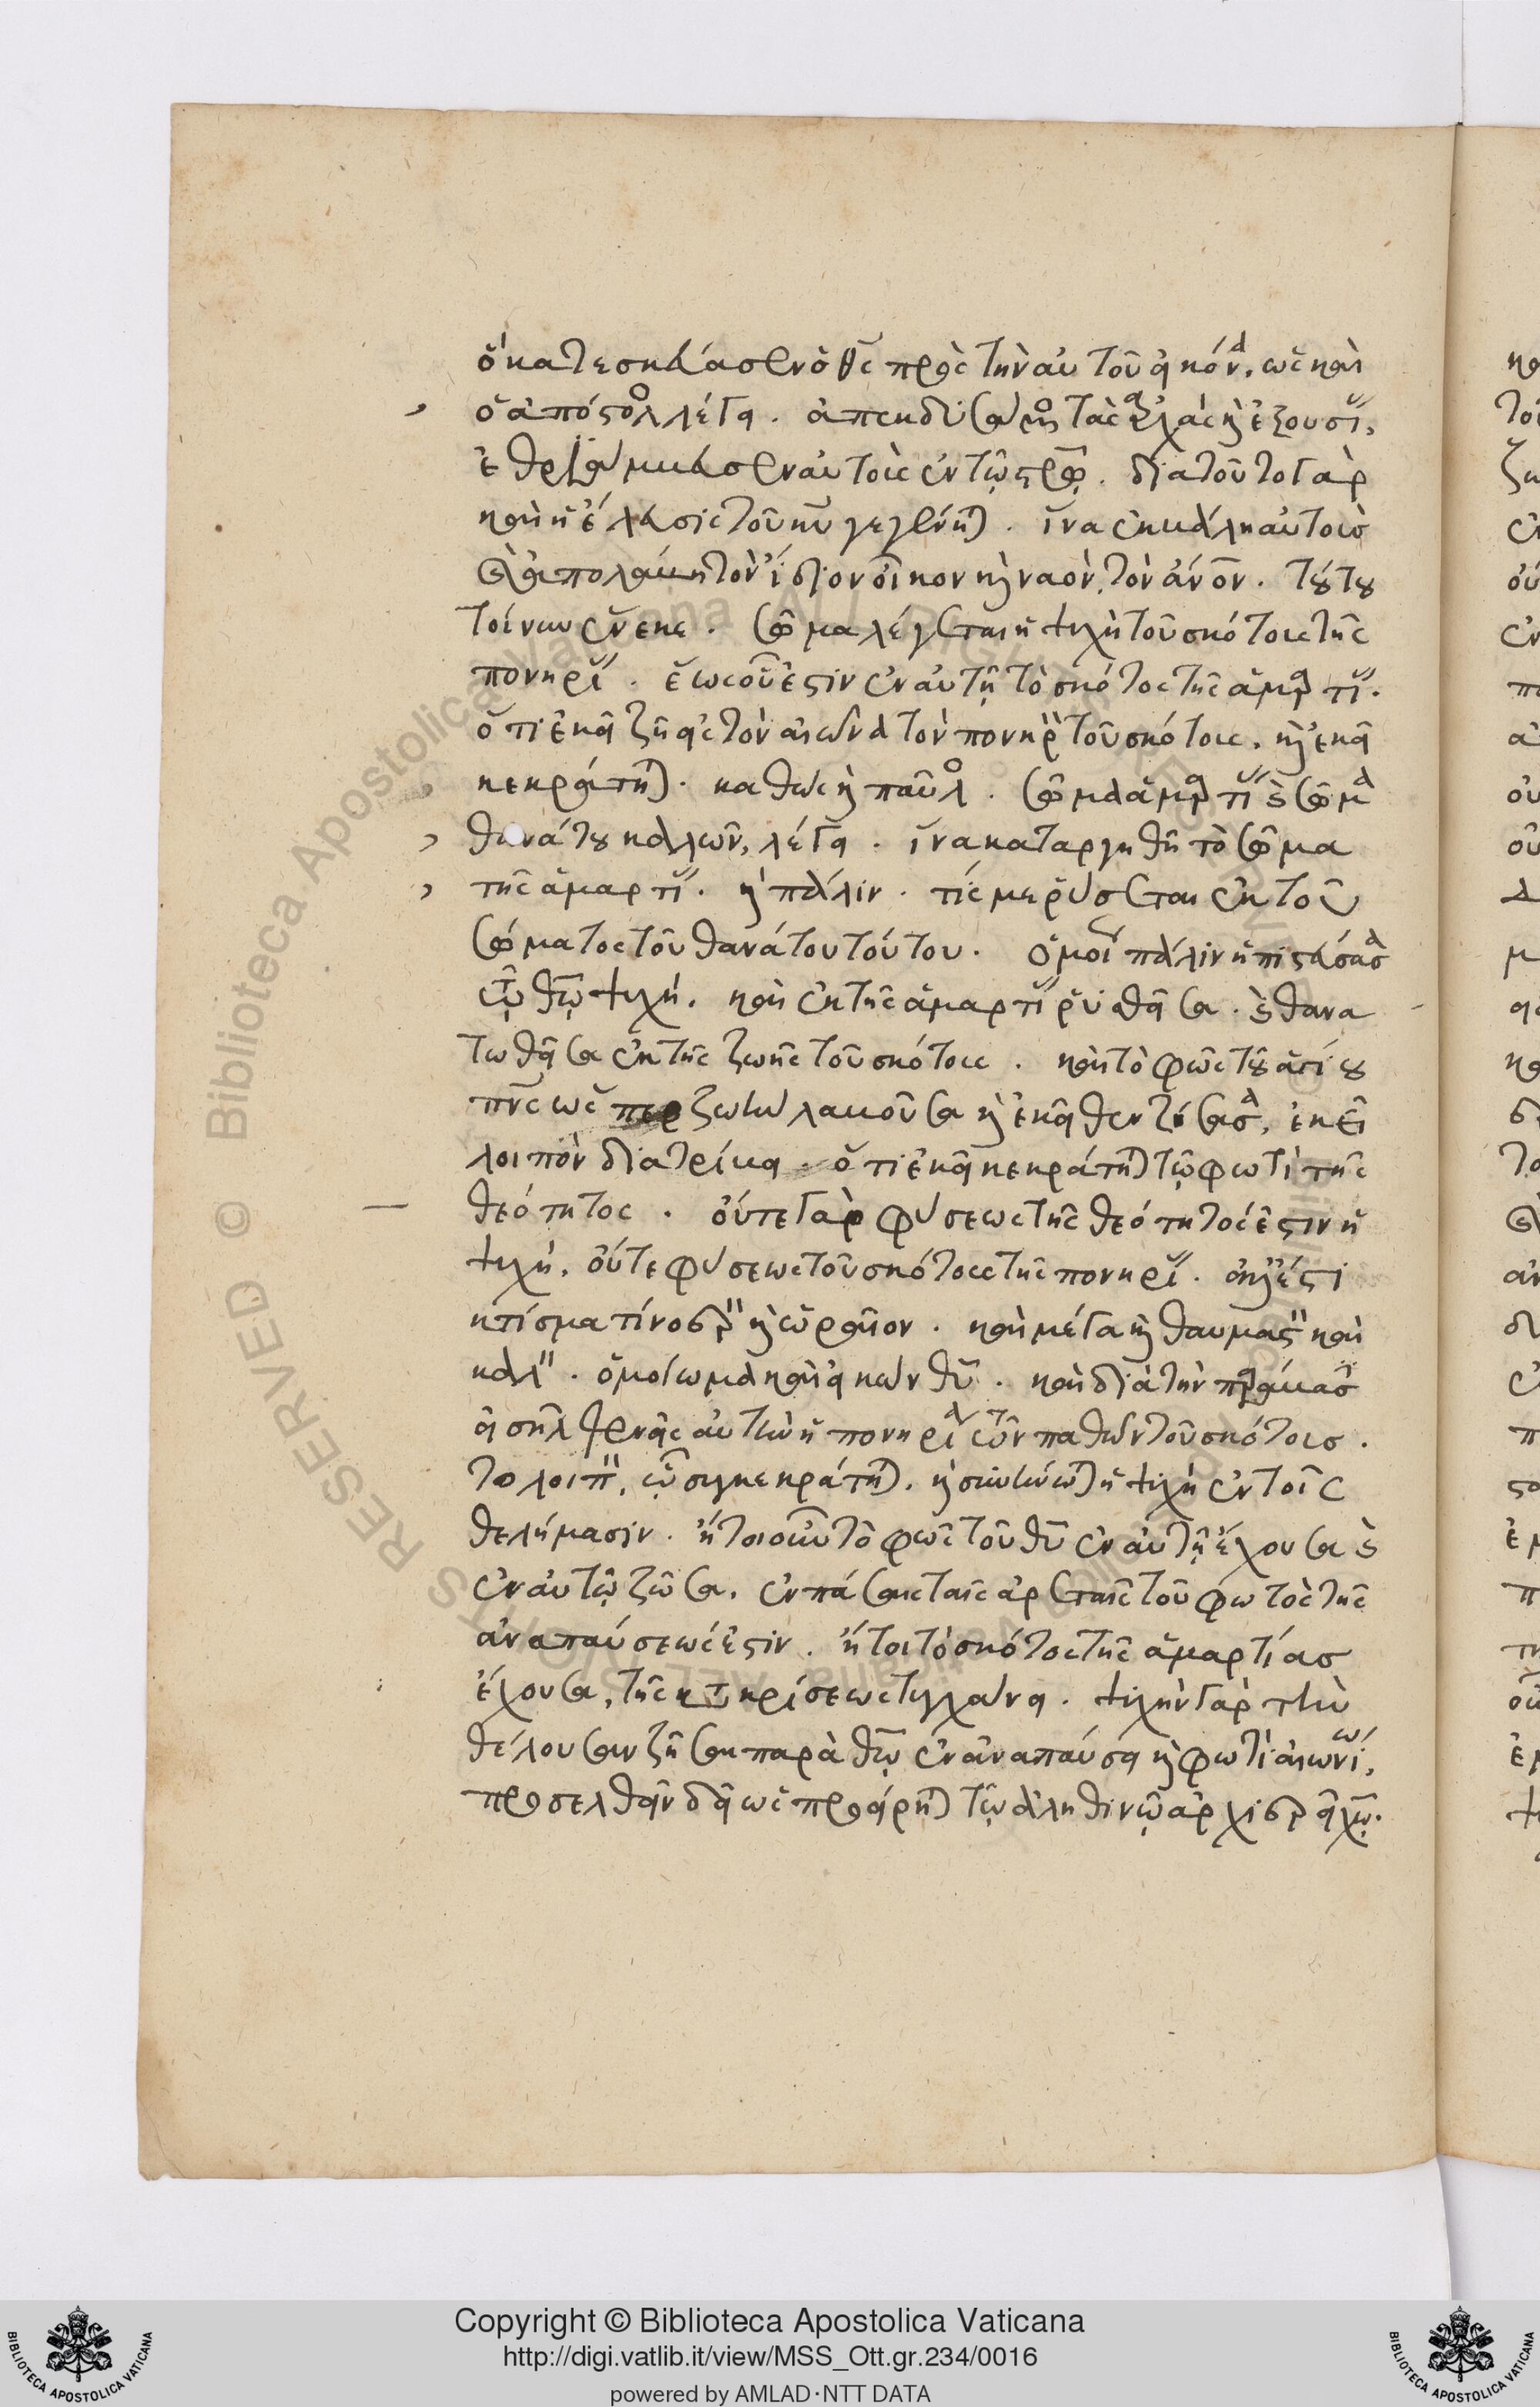 ὃ κατεσκεύασεν ὁ θς πρὸς τὴν αὐτοῦ εἰκόνα, ὡς καὶ
ὁ ἀπόστολος λέγει. ἀπεκδυσάμενος τὰς ἀρχὰς καὶ ἐξουσίας,
ἐθριάμβευσεν αὐτοὺς ἐν τῷ στρῷ. διὰ τοῦτο γὰρ
καὶ ἡ ἔλευσις τοῦ κυ γεγένηται. ἵνα ἐκβάλῃ αὐτοὺς
καὶ ἀπολάβῃ τὸν ἴδιον οἶκον καὶ ναὸν, τὸν ἄνον. τούτου
τοίνυν ἕνεκε. σῶμα λέγεται ἡ ψυχὴ τοῦ σκότους τῆς
πονηρίας. ἕως οὗ ἐστιν ἐν αὐτῇ τὸ σκότος τῆς ἁμαρτίας.
ὅτι ἐκεῖ ζῇ εἰς τὸν αἰῶνα τὸν πονηρὸν τοῦ σκότους, καὶ ἐκεῖ
κεκράτηται. καθὼς καὶ παῦλος. σῶμα ἁμαρτίας καὶ σῶμα
θανάτου καλῶν, λέγει. ἵνα καταργηθῇ τὸ σῶμα
τῆς ἁμαρτίας. καὶ πάλιν. τίς με ῥύσεται ἐκ τοῦ
σώματος τοῦ θανάτου τούτου. ὁμοίως πάλιν ἡ πιστεύσασα
τῷ θῷ ψυχή. καὶ ἐκ τῆς ἁμαρτίας ῥυσθεῖσα. καὶ θανα
τωθεῖσα ἐκ τῆς ζωῆς τοῦ σκότους. καὶ τὸ φῶς τοῦ ἁγίου
πνς ὥσπερ ζωὴν λαβοῦσα καὶ ἐκεῖθεν ζήσασα, ἐκεῖ
λοιπὸν διατρίβει. ὅτι ἐκεῖ κεκράτηται τῷ φωτὶ τῆς
θεότητος. οὔτε γὰρ φύσεως τῆς θεότητός ἐστιν ἡ
ψυχή, οὔτε φύσεως τοῦ σκότους τῆς πονηρίας. ἀλλ' ἔστι
κτίσμα τι νοερὸν καὶ ὡραῖον. καὶ μέγα καὶ θαυμαστὸν καὶ
καλὸν. ὁμοίωμα καὶ εἰκὼν θυ. καὶ διὰ τὴν παράβασιν
εἰσῆλθεν εἰς αὐτὴν ἡ πονηρία τῶν παθῶν τοῦ σκότους.
τὸ λοιπὸν, ᾧ συγκεκράτηται, καὶ σύνεστιν ἡ ψυχὴ ἐν τοῖς
θελήμασιν. ἤτοι οὖν τὸ φῶς τοῦ θυ ἐν αὐτῇ ἔχουσα καὶ
ἐν αὐτῷ ζῶσα, ἐν πάσαις ταῖς ἀρεταῖς τοῦ φωτὸς τῆς
ἀναπαύσεώς ἐστιν. ἤτοι τὸ σκότος τῆς ἁμαρτίας
ἔχουσα, τῆς κατακρίσεως τυγχάνει. ψυχὴν γὰρ τὴν
θέλουσαν ζῆσαι παρὰ θῷ ἐν ἀναπαύσει καὶ φωτὶ αἰωνίῳ,
προσελθεῖν δεῖ ὡς προείρηται τῷ ἀληθινῷ ἀρχιερεῖ χῷ.
Copyright © Biblioteca Apostolica Vaticana
http://digi.vatlib.it/view/MSS_Ott.gr.234/0016
powered by AMLAD·NTT DATA